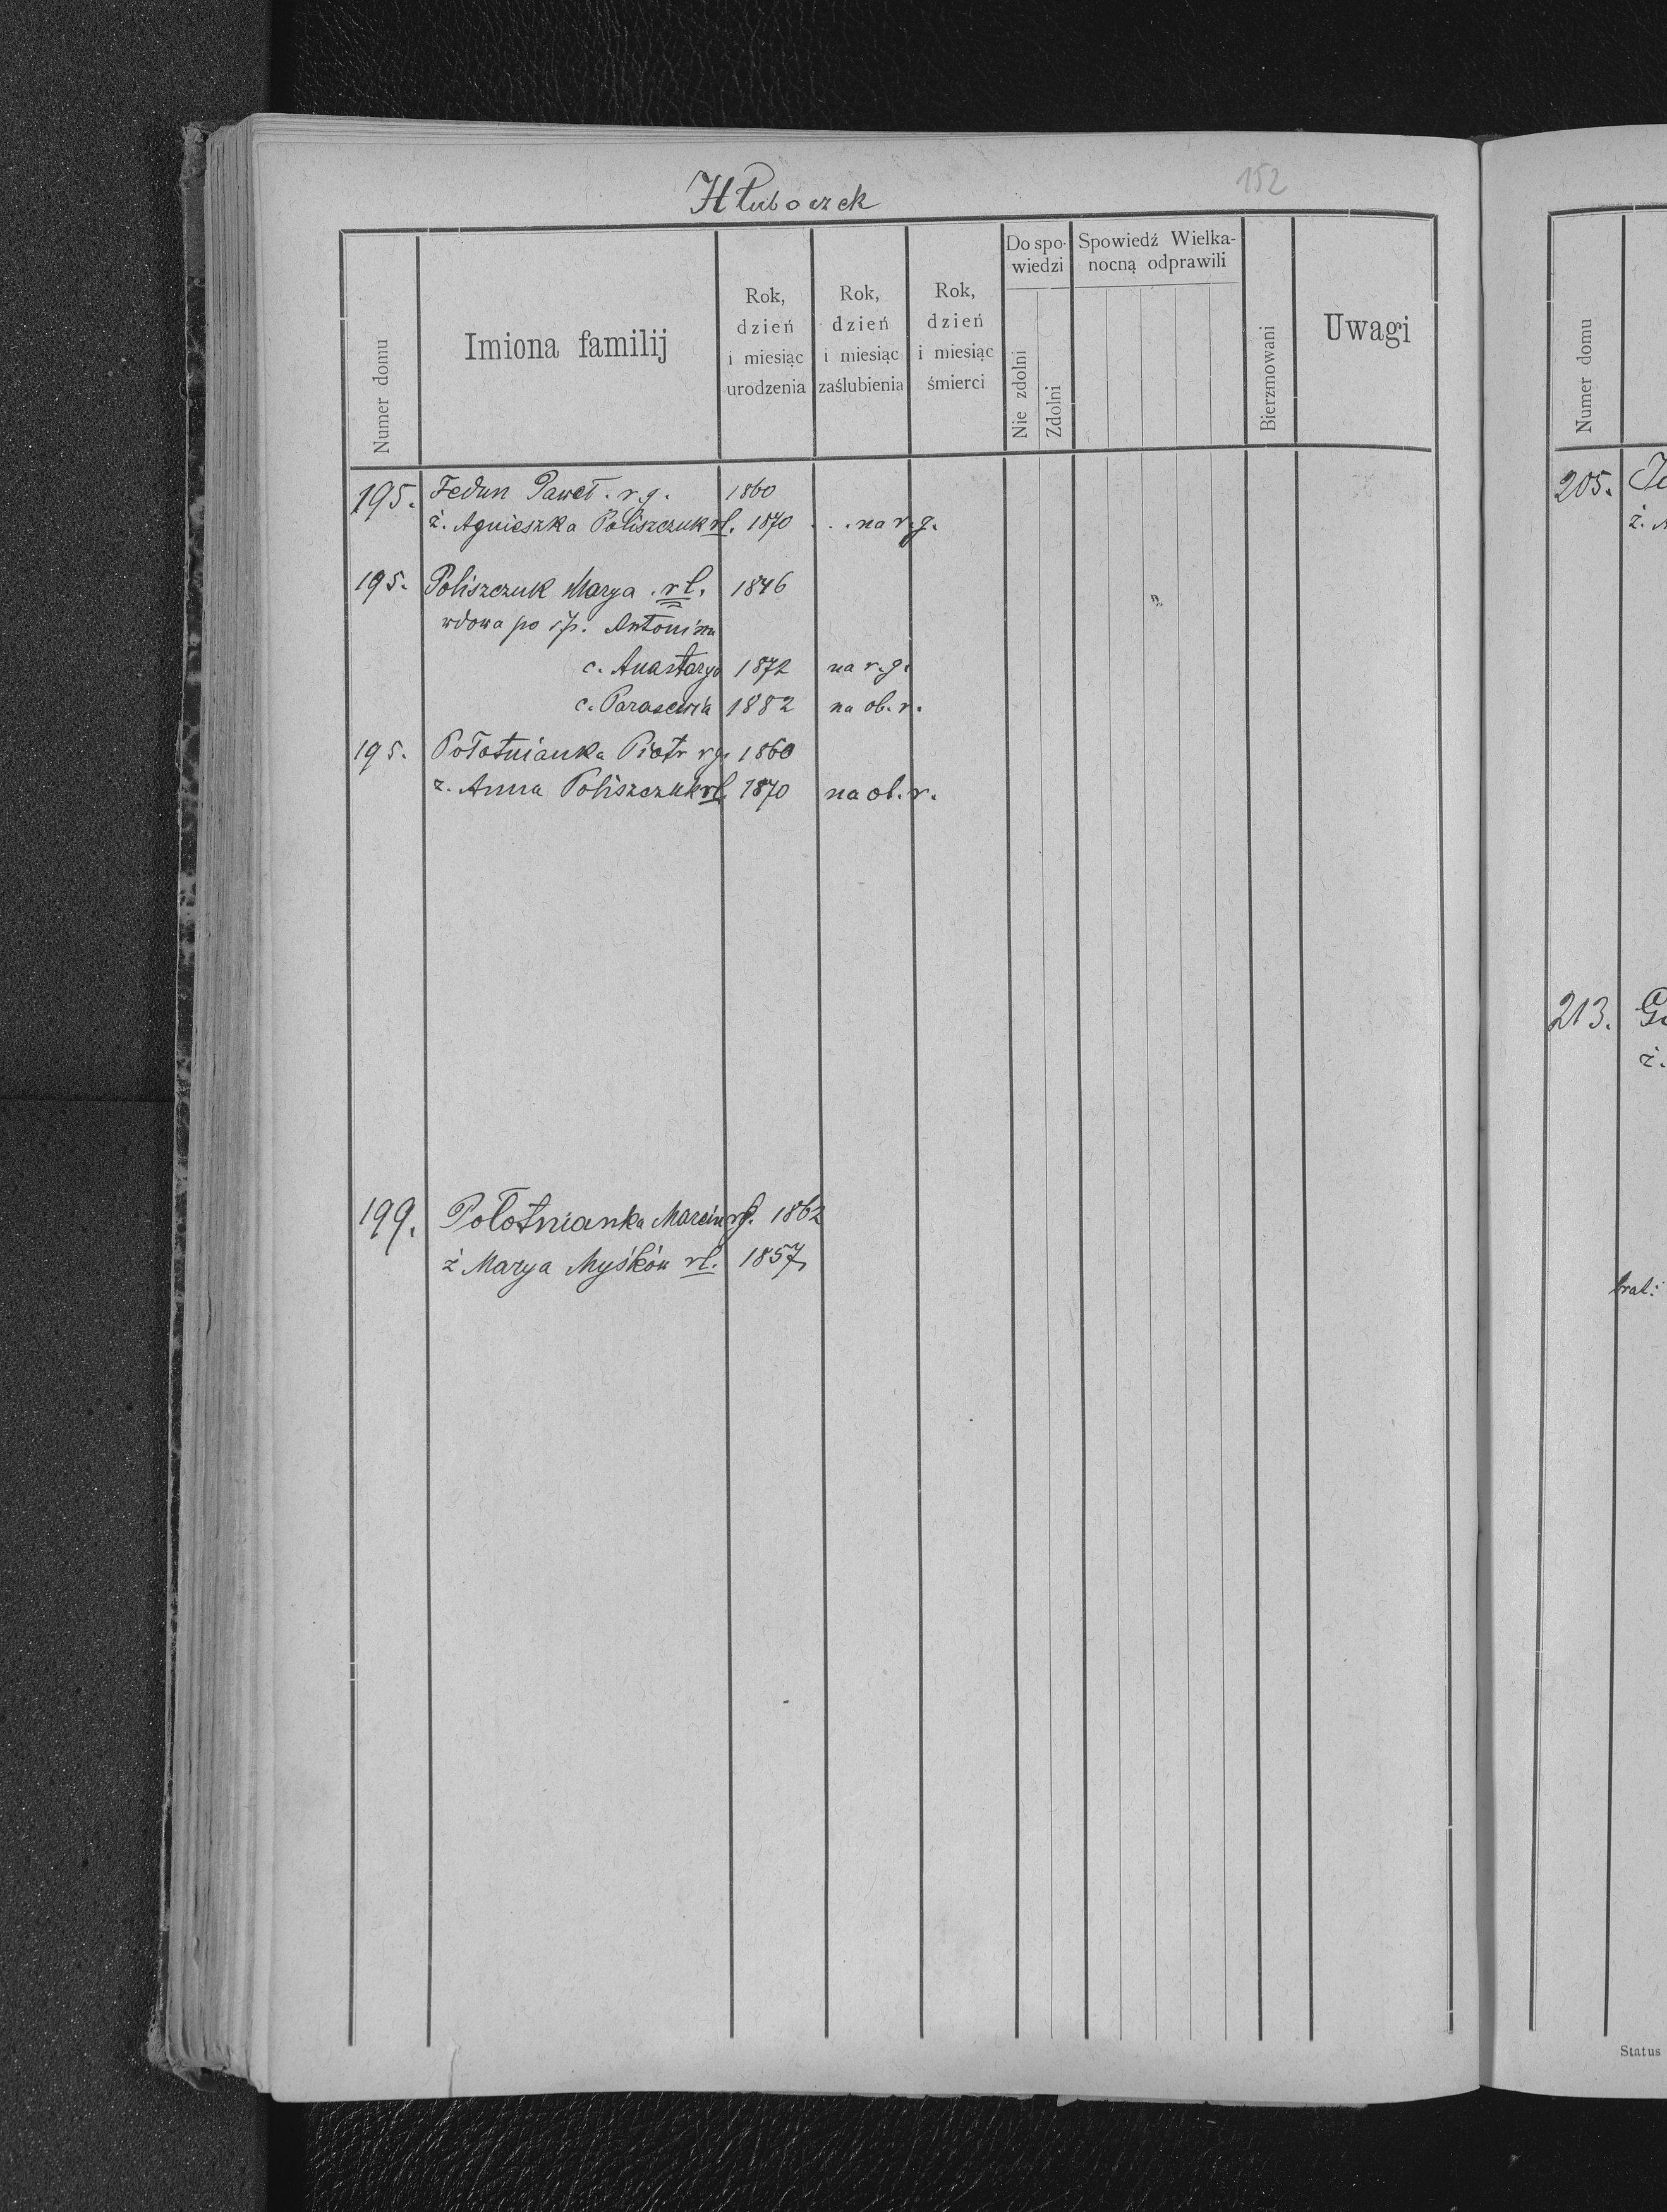 Hłuboczek
152
Numer domu
Imiona familij
Rok, dzień i miesiąc urodzenia
Rok, dzień i miesiąc zaślubienia
Rok, dzień i miesiąc śmierci
Do spowiedzi
Nie zdolni
Zdolni
Spowiedź Wielkanocną odprawili
Bierzmowani
Uwagi
195. Fedun Paweł . r.g. 1860
ż. Agnieszka Poliszczuk rl. 1870 . . . na r.g.
195. Poliszczuk Marya . rl. 1846
wdowa po śp. Antonim
c. Anastazya 1872 na r.g.
c. Parasewia 1882 na ob. r.
195. Połotnianka Piotr rg. 1860
ż. Anna Poliszczuk rl. 1870 na ob. r.
199. Połotnianka Marcin rg. 1862
ż Marya Myśków rl. 1857
Numer domu
205.
ż.
213.
ż.
brat:
Status